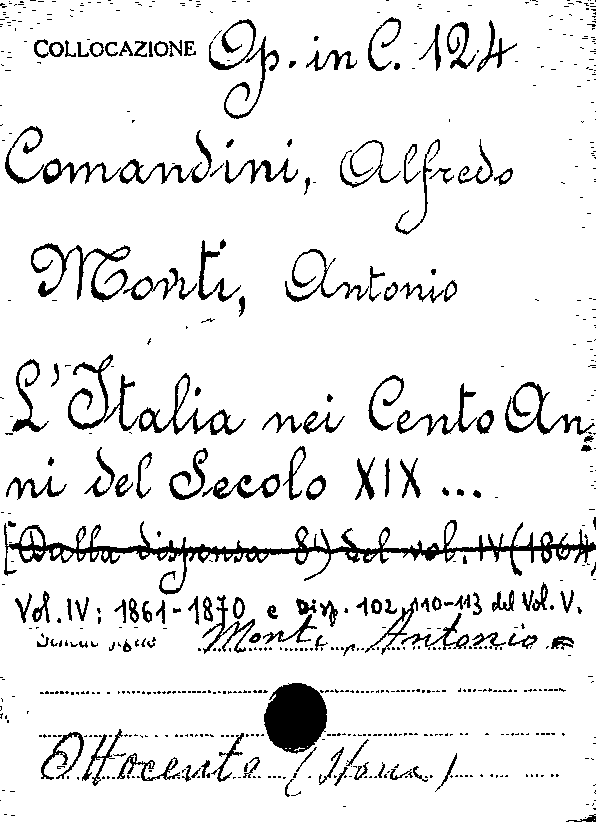 COLLOCAZIONE Op. in C. 124
Comandini, Alfredo
Monti, Antonio
L'Italia nei Cento An-
ni del Secolo XIX ...
[Dalla dispensa 8ª) del vol. IV (1864)
Vol. IV: 1861-1870 e Disp. 102, 110-113 del Vol. V.
Monti, Antonio =
Ottocento (Storia)